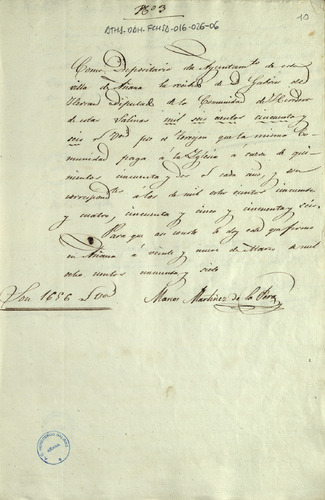 1803
10
ATHA-DAH-FCHSA-016-026-06
Como Depositario de Ayuntamto de esta
villa de Añana he recibido de D. Gabino de
Herran Diputado de la Comunidad de Herederos
de estas Salinas mil seis cientos cincuenta y
seis rs von por el que la misma
munidad paga á la Yglesia á razon de qui-
nientos cincuenta y dos rs cada año, y son
correspondtes á los de mil ocho cientos cincuenta
y cuatro, cincuenta y cinco y cincuenta y seis
Para que asi conste le doy este que firmo
en Añana á veinte y nueve de Marzo de mil
ocho cientos cincuenta y siete
Son 1656 rs von
Marcos Martinez de la Pera